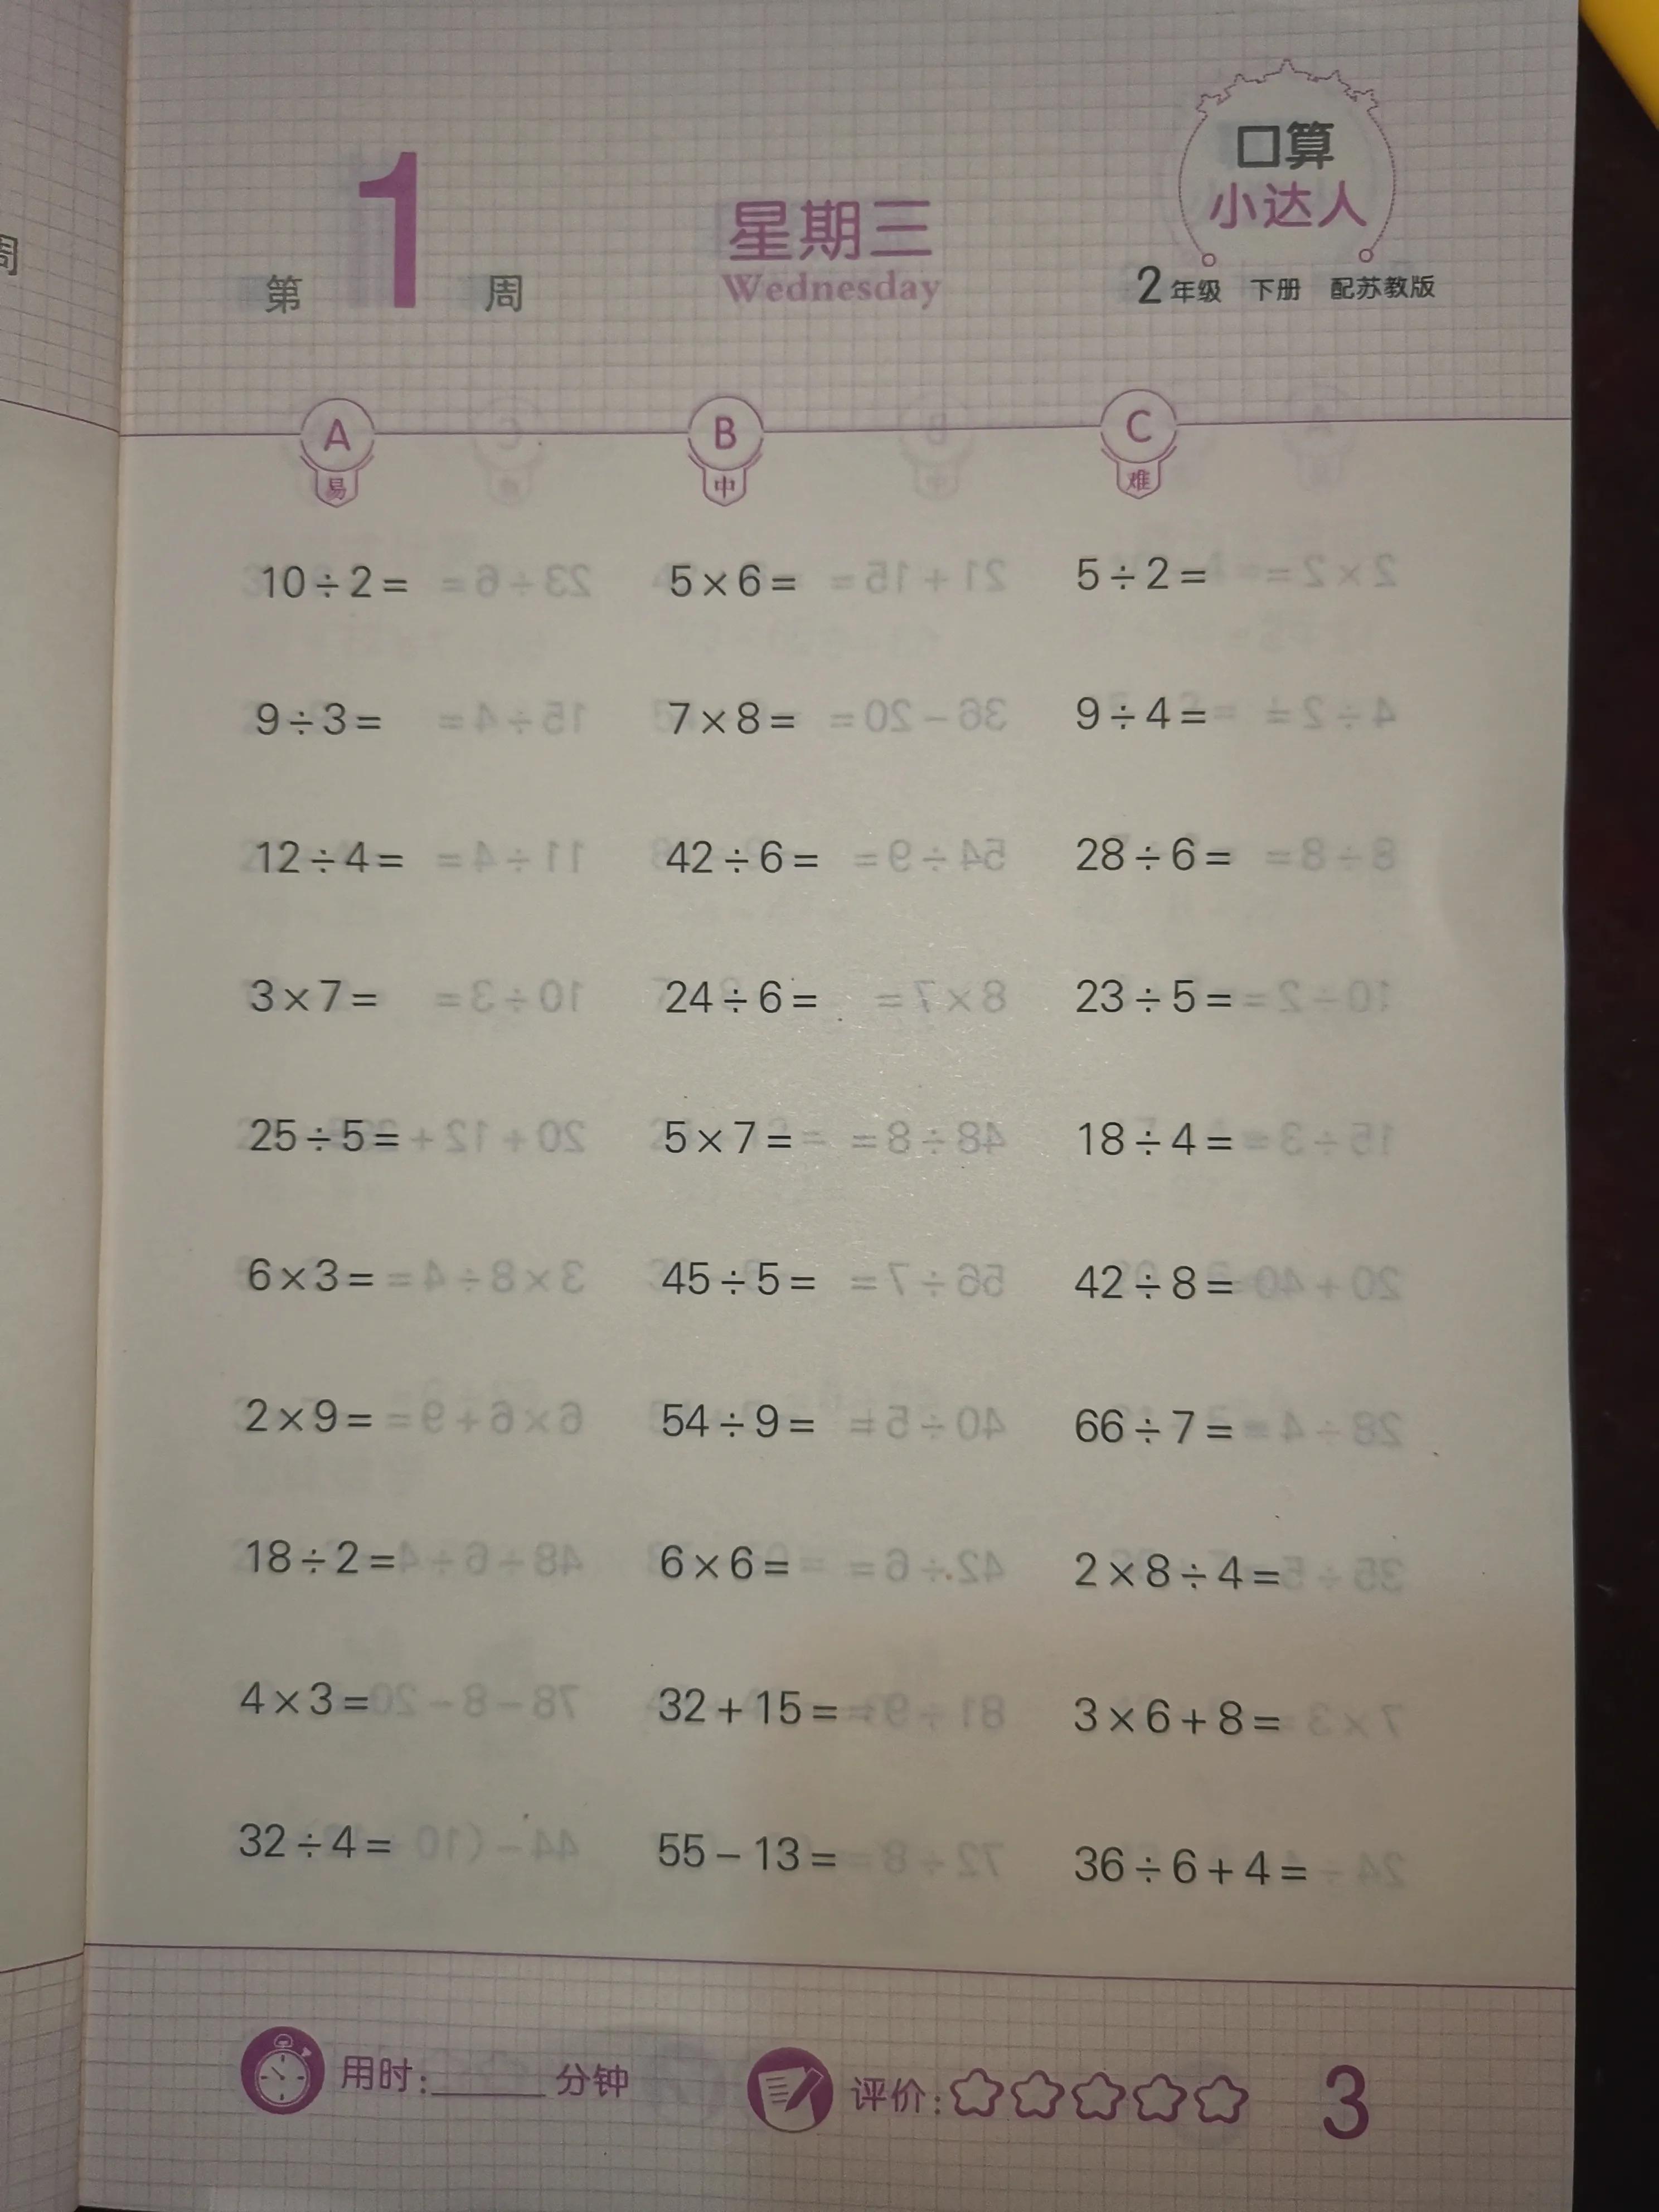 周
口算
小达人
第 1 周
星期三
Wednesday
2年级 下册 配苏教版
A B C
易 中 难
10÷2= 5×6= 5÷2=
9÷3= 7×8= 9÷4=
12÷4= 42÷6= 28÷6=
3×7= 24÷6= 23÷5=
25÷5= 5×7= 18÷4=
6×3= 45÷5= 42÷8=
2×9= 54÷9= 66÷7=
18÷2= 6×6= 2×8÷4=
4×3= 32+15= 3×6+8=
32÷4= 55-13= 36÷6+4=
用时:______分钟 评价: 3